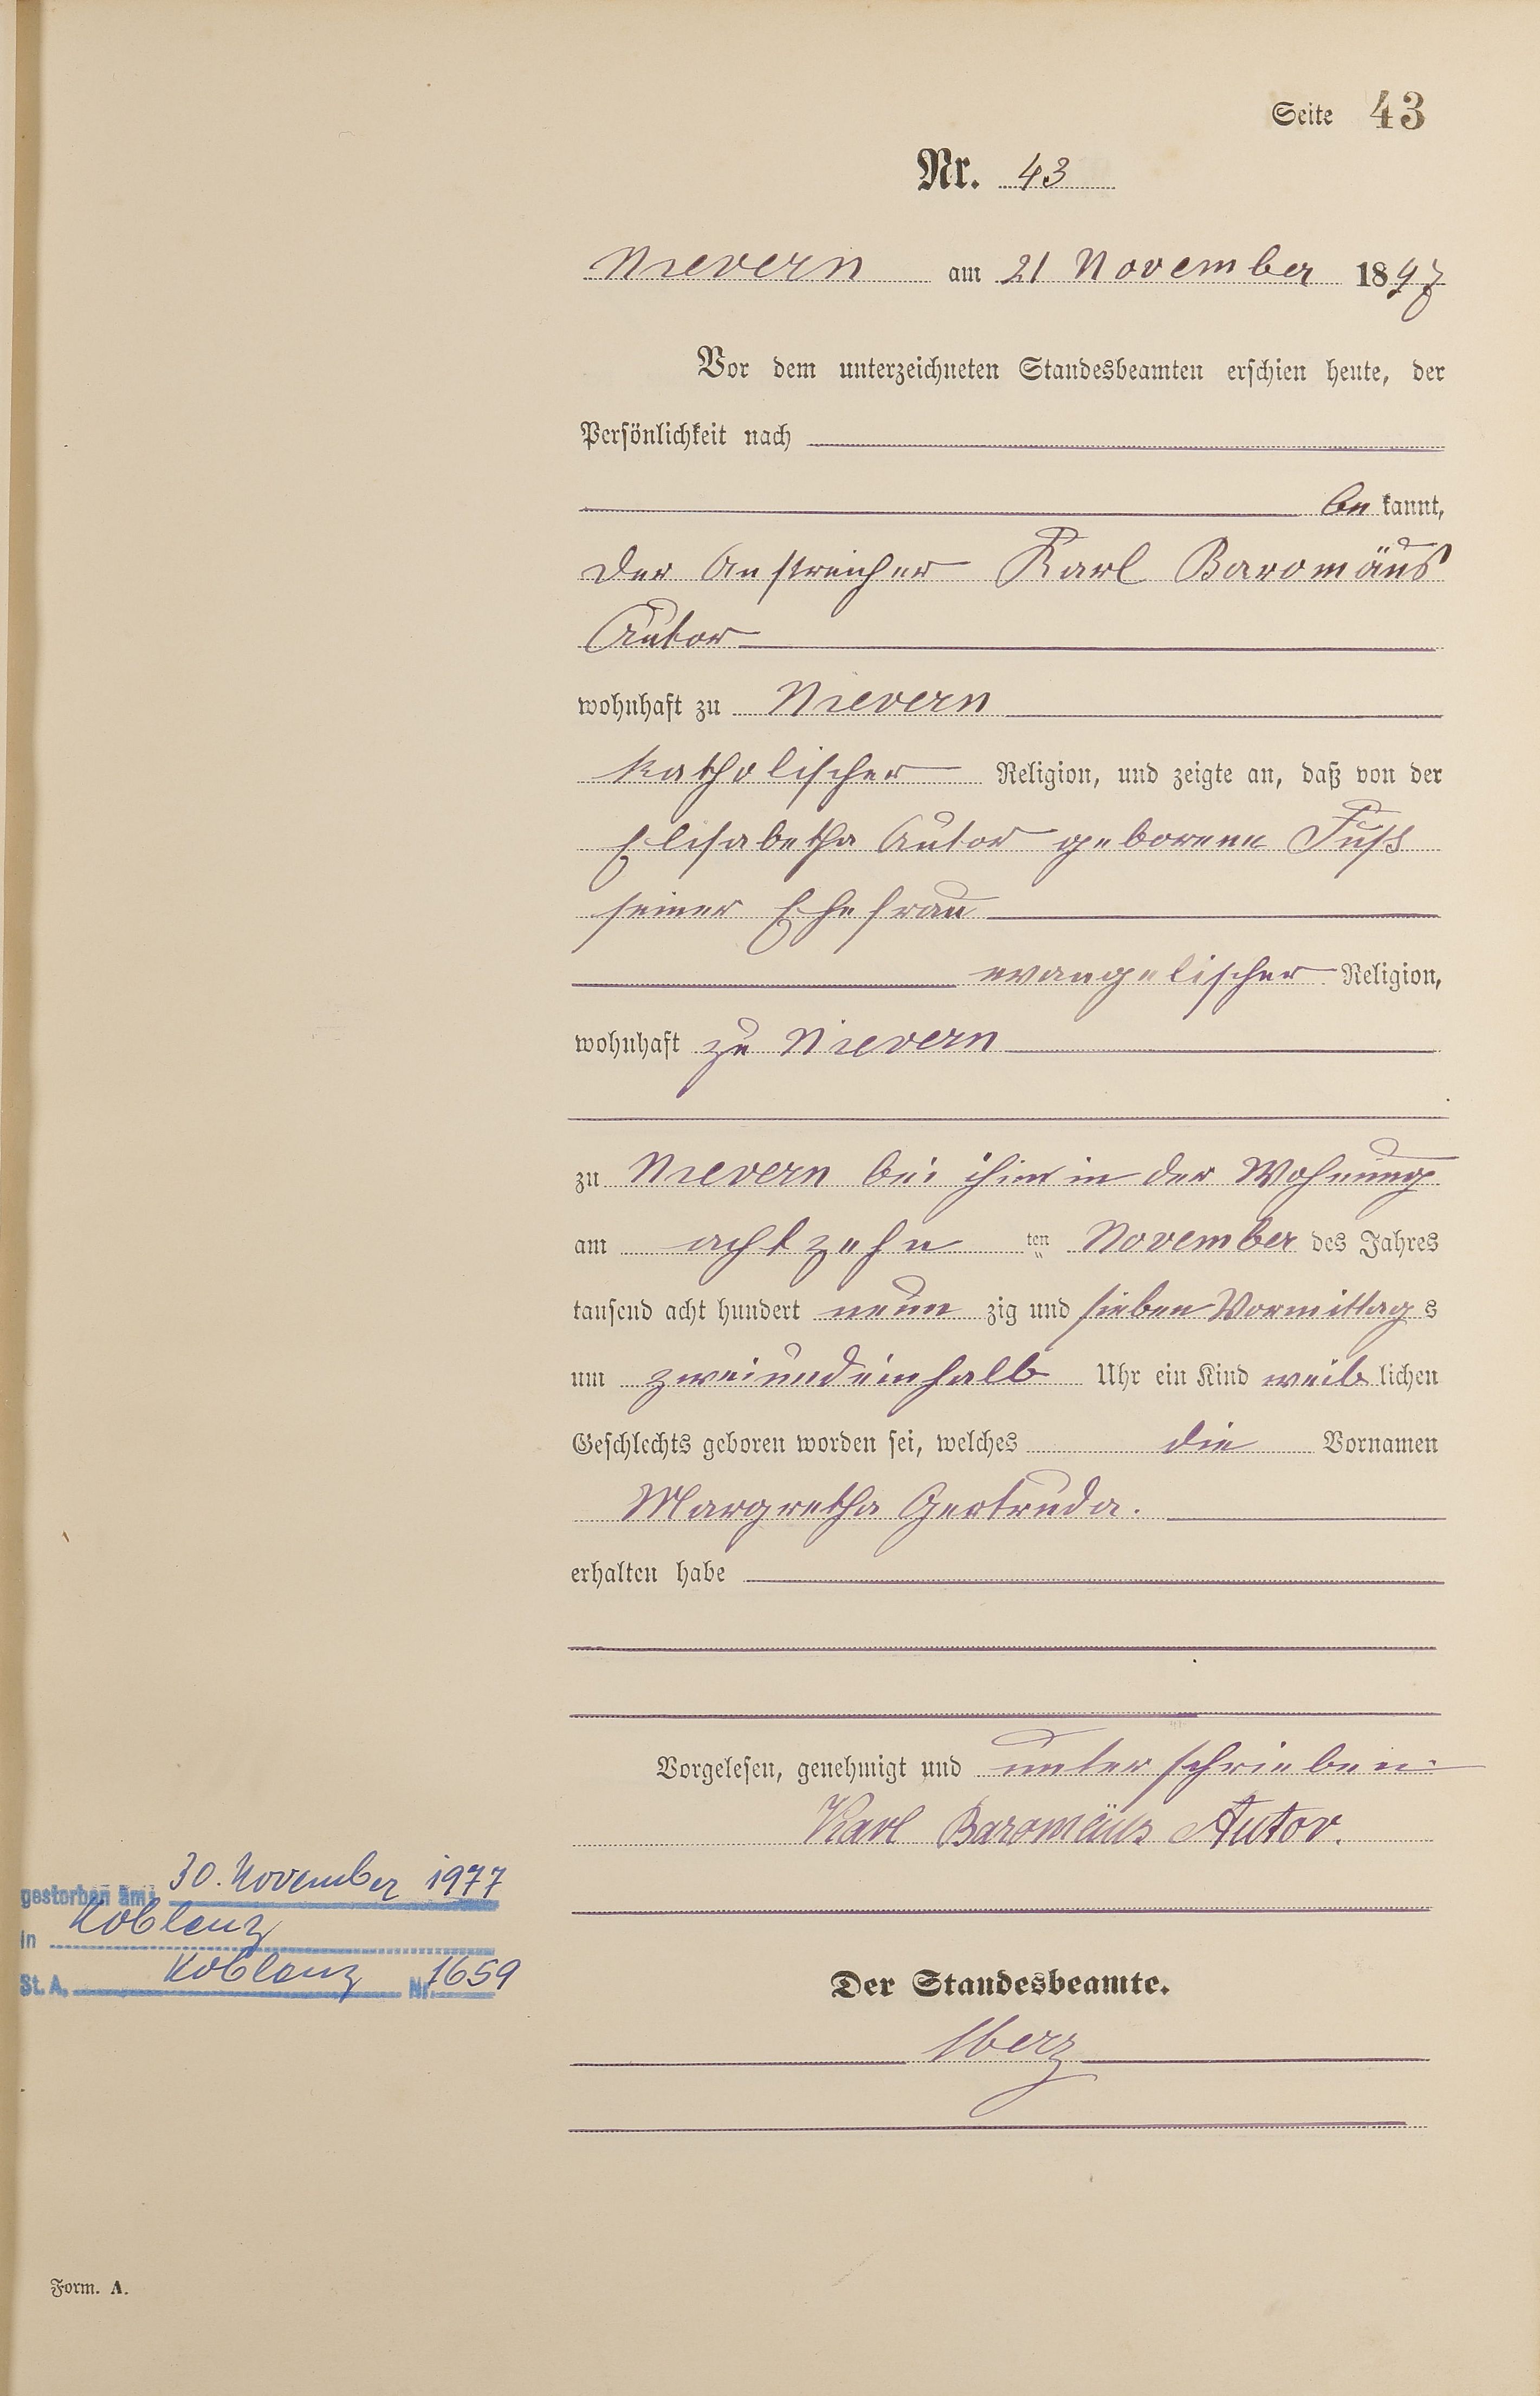 Seite 43
Nr. 43
Nievern am 21 November 1897
Vor dem unterzeichneten Standesbeamten erschien heute, der
Persönlichkeit nach
be kannt,
der Anstreicher Karl Baromäus
Autor
wohnhaft zu Nievern
katholischer Religion, und zeigte an, daß von der
Elisabetha Autor geborene Fuß
seiner Ehefrau
evangelischer Religion,
wohnhaft zu Nievern
zu Nievern bei ihm in der Wohnung
am achtzehn ten November des Jahres
tausend acht hundert neun zig und sieben Vormittag s
um zweiundeinhalb Uhr ein Kind weib lichen
Geschlechts geboren worden sei, welches die Vornamen
Margretha Gertruda.
erhalten habe
Vorgelesen, genehmigt und unterschrieben
Karl Baromäus Autor.
Der Standesbeamte.
gestorben am: 30. November 1977
in Koblenz
St. A. Koblenz Nr. 1659
Form. A.